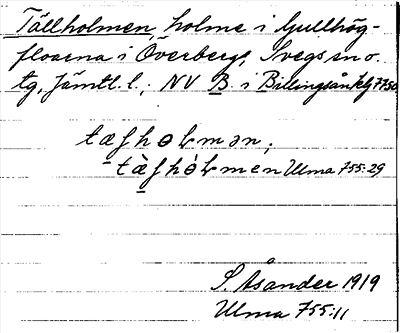 Tällholmen, holme i Gullhög-
floarna i Överberg, Svegs sn o.
tg, Jämtl. l.; NV B. i Billingsån
tæʃhɵɽmən;
tæ̀ʃhɵ̀ɽmen Ulma 755:29
S. Åsander 1919
Ulma 755:11